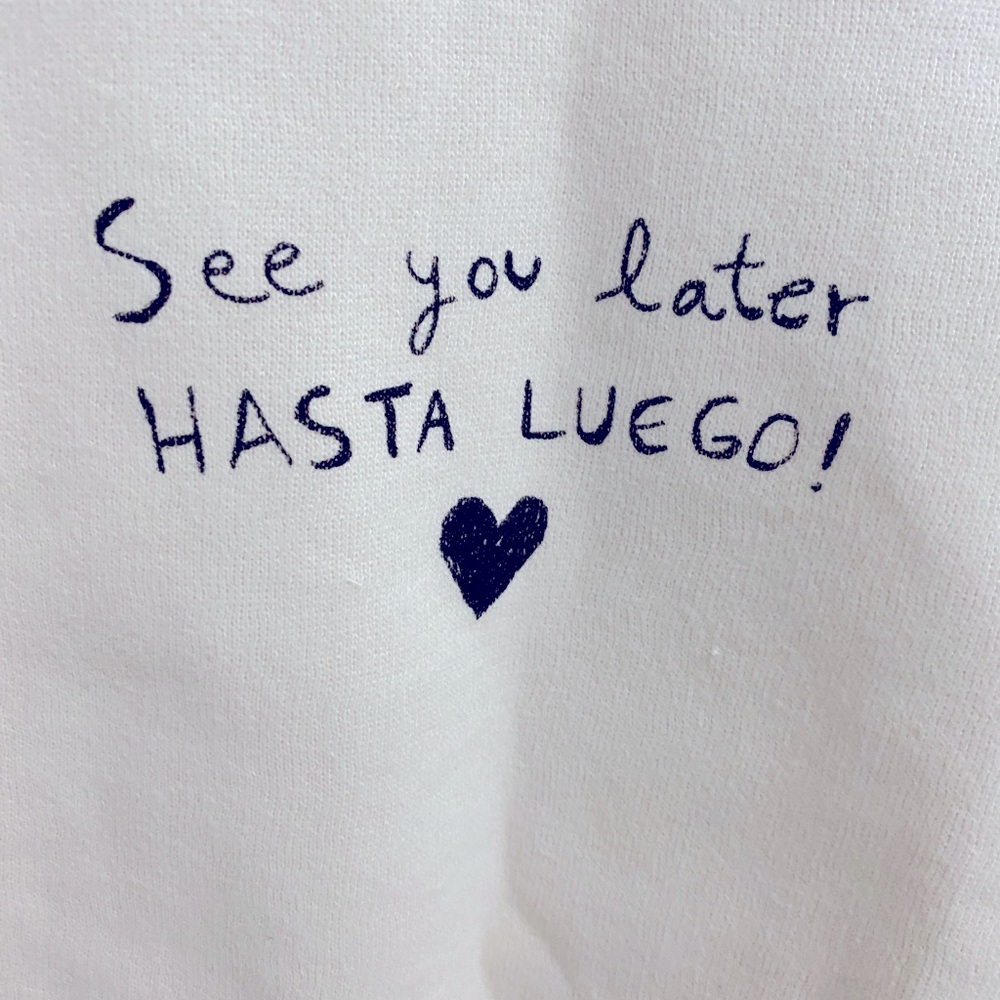 See you later
HASTA LUEGO!